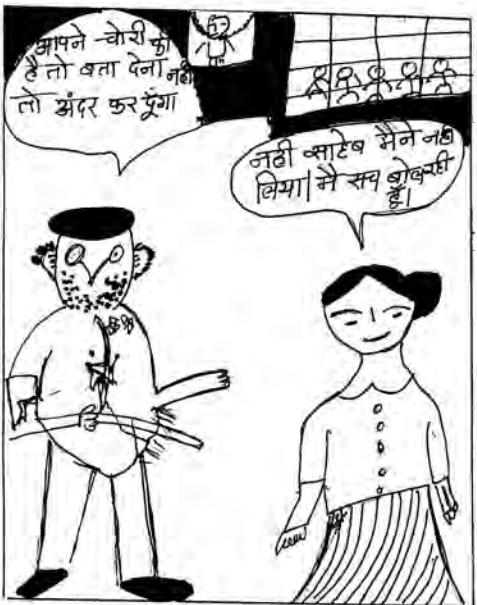 आपने चोरी की
है तो बता देना नही
तो अंदर कर दूँगा
नही साहेब मैने नही
लिया। मै सच बोल रही
हूँ।